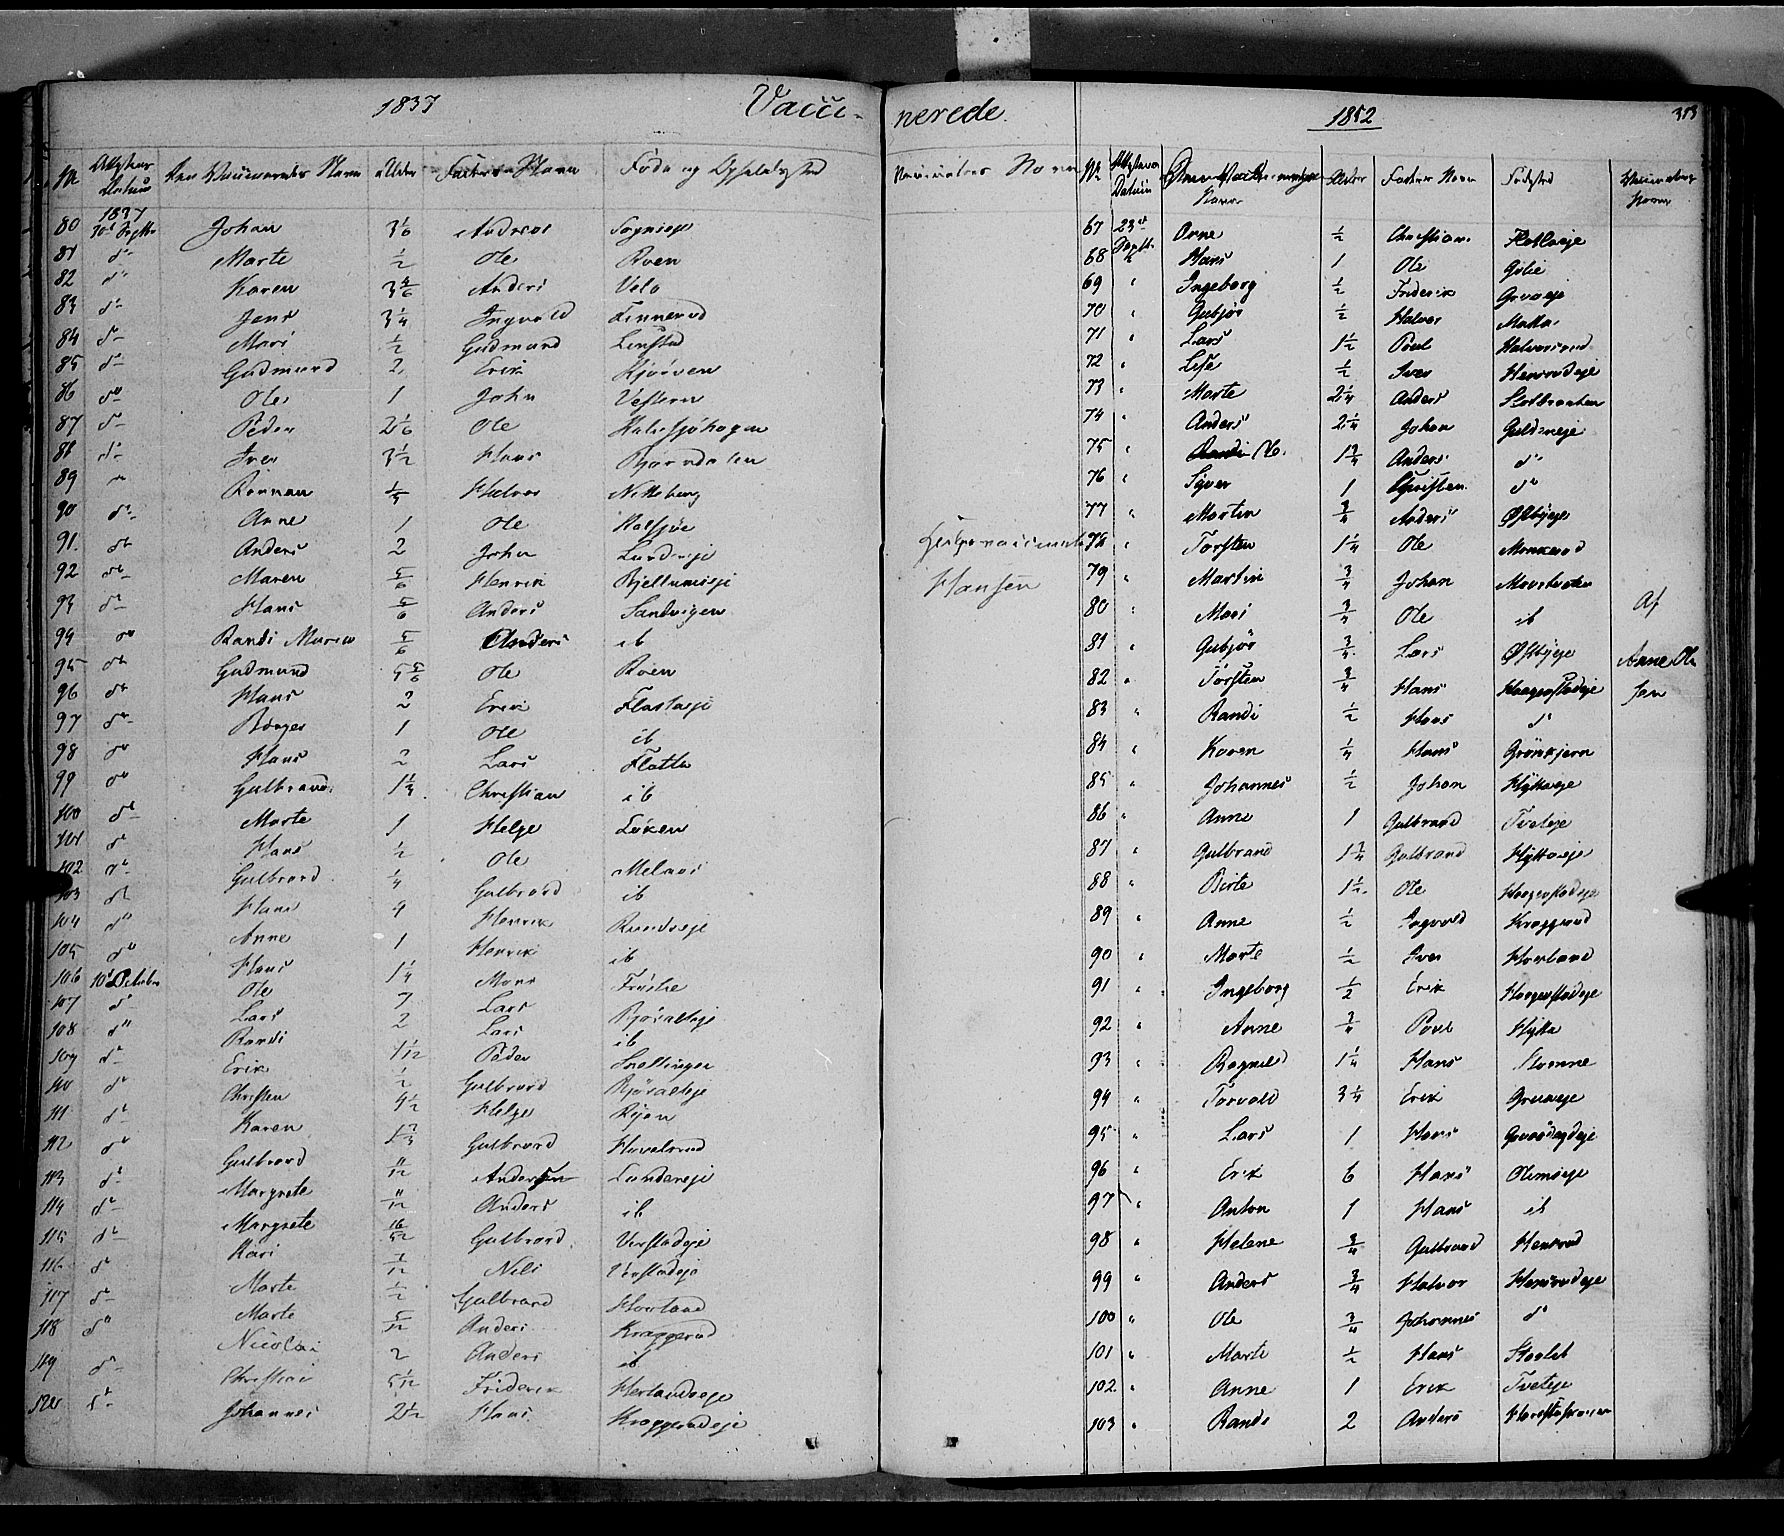 1837 Vacci- nerede. 1852 313
No Attestens Datum Den Vaccineredes Navn Alder Faders Navn Føde og Opholdssted
1837
80 30te Septbr Johan 3 1/6 Andreas
81 do Marte 1/2 Ole Roen
82 do Karen 3 4/6 Anders Velo
83 do Jens 3 1/4 Ingvald Finnerud
84 do Mari 1/2 Gudmund Linstad
85 do Gudmund 2 Erik Kjørven
86 do Ole 1 John Vestern
87 do Peder 2 1/6 Ole
88 do Iver 3 1/2 Hans Bjørndalen
89 Halvor Nitteberg
90 do Anne 1 Ole Halsjøe
91. do Anders 2 John Lundeeje
92 do Maren 5/6 Henrik
93 do Hans 5/6 Anders Sandvigen
94 do Randi Maren 5/6 Anders ib
95 do Gudmund 5 5/6 Ole Roen
96 do Hans 2 Erik Flataeje
97 do Børger 1 Ole ib
98 do Hans 2 Lars Flatta
99 do Gulbrand 1 1/3 Christian ib
100 do Marte 1 Helge Løken
101 do Hans 1/2 Ole Melaas
102 do Gulbrand 1/4 Gulbrand ib
103 do Hans 9 Henrik Rundseje
104 do Anne 1 Henrik ib
105 do Hans 1 1/4 Mons Frøshe
106 10de Octuber Ole 7 Lars Bjøralteje
107 do Lars 2 Lars ib
108 do Randi 1 1/12 Peder Snellingen
109 do Erik 1/2 Gulbrand Bjøralteje
110 do Christen 4 1/2 Helge Rejen
111 do Karen 1 2/3 Gulbrand Hovelsrud
112 do Gulbrand 11/12 Andersen Lundereje
113 do Margrete 11/12 Anders ib
114 do Margrete 16/52 Gulbrand Verstadeje
115 do Kari 7/12 Nils Verstadeje
116 do Marte 1/2 Gulbrand Horland
117 do Marte 5/12 Anders Kraggerud
118 do Nicolai 2 Anders ib
119 do Christian 5 1/12 Friderik Horlandseje
120 do Johannes 2 1/2 Hans Kraggerudeje
Vaccinators Navn
Hansen
No Attestens Datum Navn Alder Faders Navn Fødested Vaccinators Navn
67 23de Septbr Arne 1/2 Christian Flatlaeje
68 " Hans 1 Ole Gulie
69 " Ingeborg 1/2 Friderik Gruaeje
70 " Gubjør 1/2 Halvor Matta
71 " Lars 1 1/2 Poul Halvorsrud
72 " Lise 1/2 Iver Henrudeje
73 " Marte 2 1/4 Anders Stolbraaten
74 " Anders 2 1/4 Johan Guldeneje
75 " Randi M. 1 3/4 Anders do
76 " Syver 1 Christen do
77 " Martin 3/4 Anders Østbyeje
78 " Torsten 1 1/4 Ole Monkerud
79 " Martin 3/4 Johan
80 " Mari 3/4 Ole ib Af
81 " Gubjør 3/4 Lars Østbyeje Anne Ol-
82 " Torsten 3/4 Hans Haagenstadeje sen
83 " Randi 1/2 Hans do
84 " Karen 1/4 Hans Grønkjern
85 " Johannes 1/2 Johan Hyttaeje
86 " Anne 1 Gulbrand Tveteje
87 " Gulbrand 1 3/4 Gulbrand Hyttaeje
88 " Birte 1 1/2 Ole Haagenstadeje
89 " Anne 1/2 Ingvald Kraggerud
90 " Marte 1/2 Iver Horland
91 " Ingeborg 1/2 Erik Haagenstadeje
92 " Anne 3/4 Poul Hytta
93 " Ragnil 1 1/4 Hans
94 " Torvald 3 1/4 Erik Gruaeje
95 " Lars 1 Hans
96 " Erik 6 Hans Olimseje
97 " Anton 1 Hans ib
98 " Helene 3/4 Gulbrand Henrud
99 " Anders 3/4 Halvor Henrudeje
100 " Ole 3/4 Johannes do
101 " Marte 1/2 Hans
102 " Anne 1 Erik Tveteje
103 " Randi 2 Anders